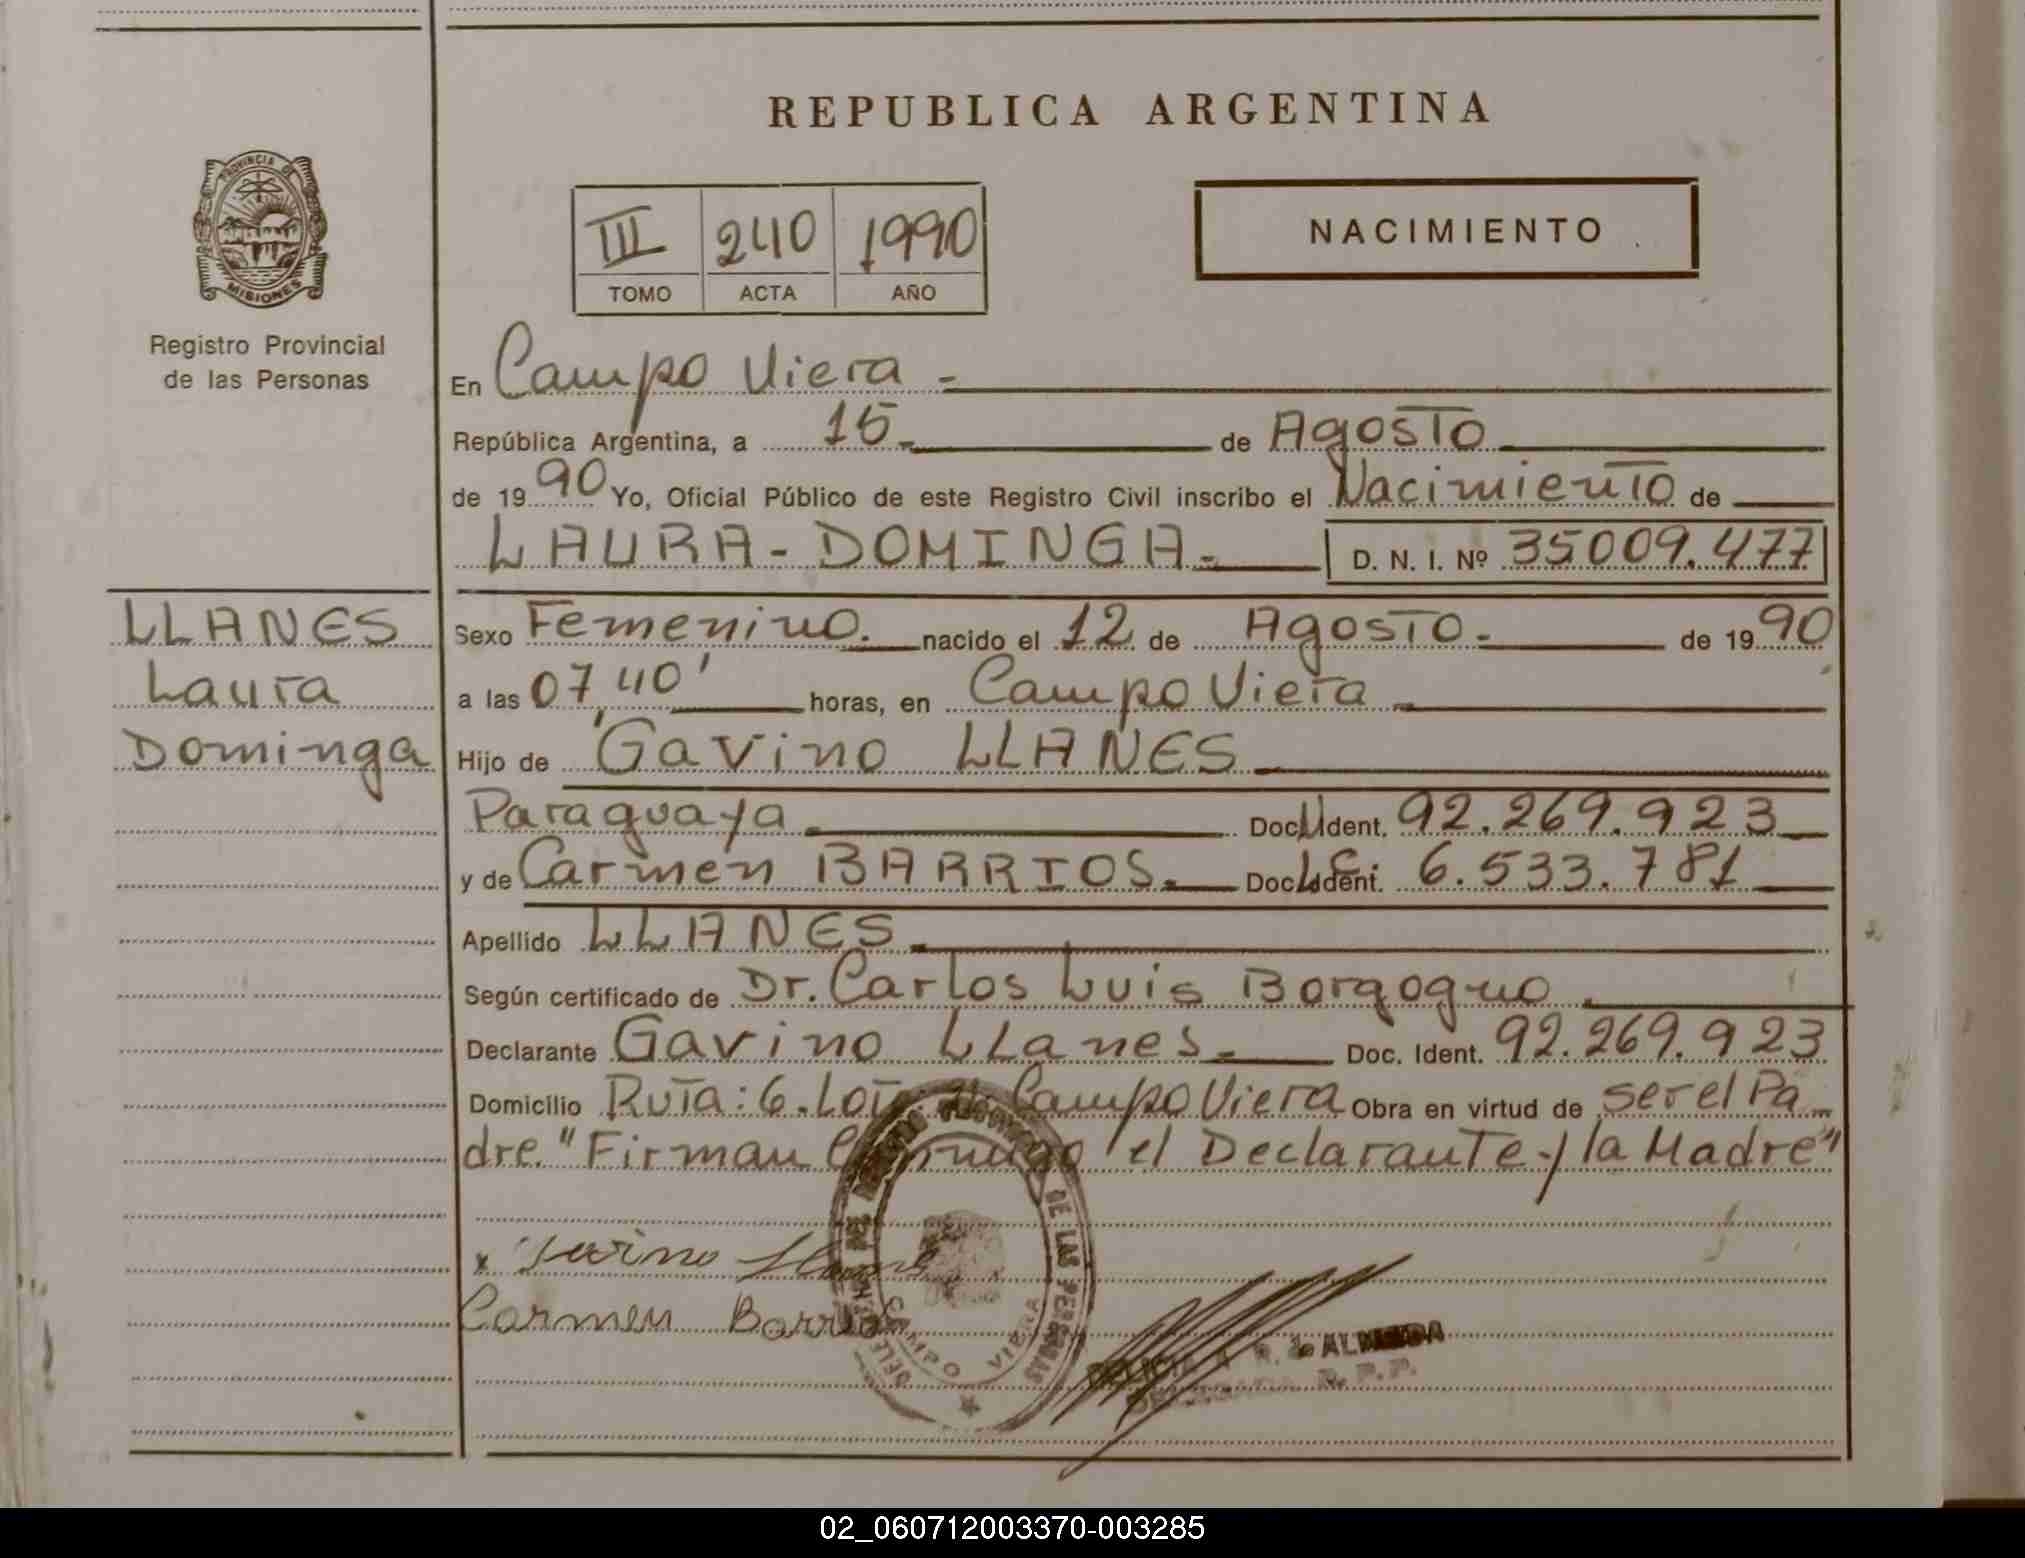 REPUBLICA ARGENTINA
PROVINCIA DE
MISIONES
Registro Provincial
de las Personas
III 240 1990
TOMO ACTA AÑO
NACIMIENTO
En Campo Viera.-
República Argentina, a 15.- de Agosto
de 1990 Yo, Oficial Público de este Registro Civil inscribo el Nacimiento de
LAURA-DOMINGA.- D. N. I. Nº 35009.477
LLANES
Laura
Dominga
Sexo Femenino. nacido el 12 de Agosto.- de 1990
a las 07,40' horas, en Campo Viera.-
Hijo de Gavino LLANES
Paraguaya Doc. Ident. 92.269.923
y de Carmen BARRIOS.- Doc. Ident. L.C. 6.533.781
Apellido LLANES
Según certificado de Dr. Carlos Luis Borgogno.
Declarante Gavino LLanes.- Doc. Ident. 92.269.923
Domicilio Ruta: 6. Campo Viera Obra en virtud de ser el Pa-
dre. "Firman Conmigo el Declarante y la Madre"
x Gavino Llanes
Carmen Barrios
DE LAS PERSONAS
CAMPO VIERA
DELICIA A R. de ALMEIDA
DELEGADA R.P.P.
02_060712003370-003285